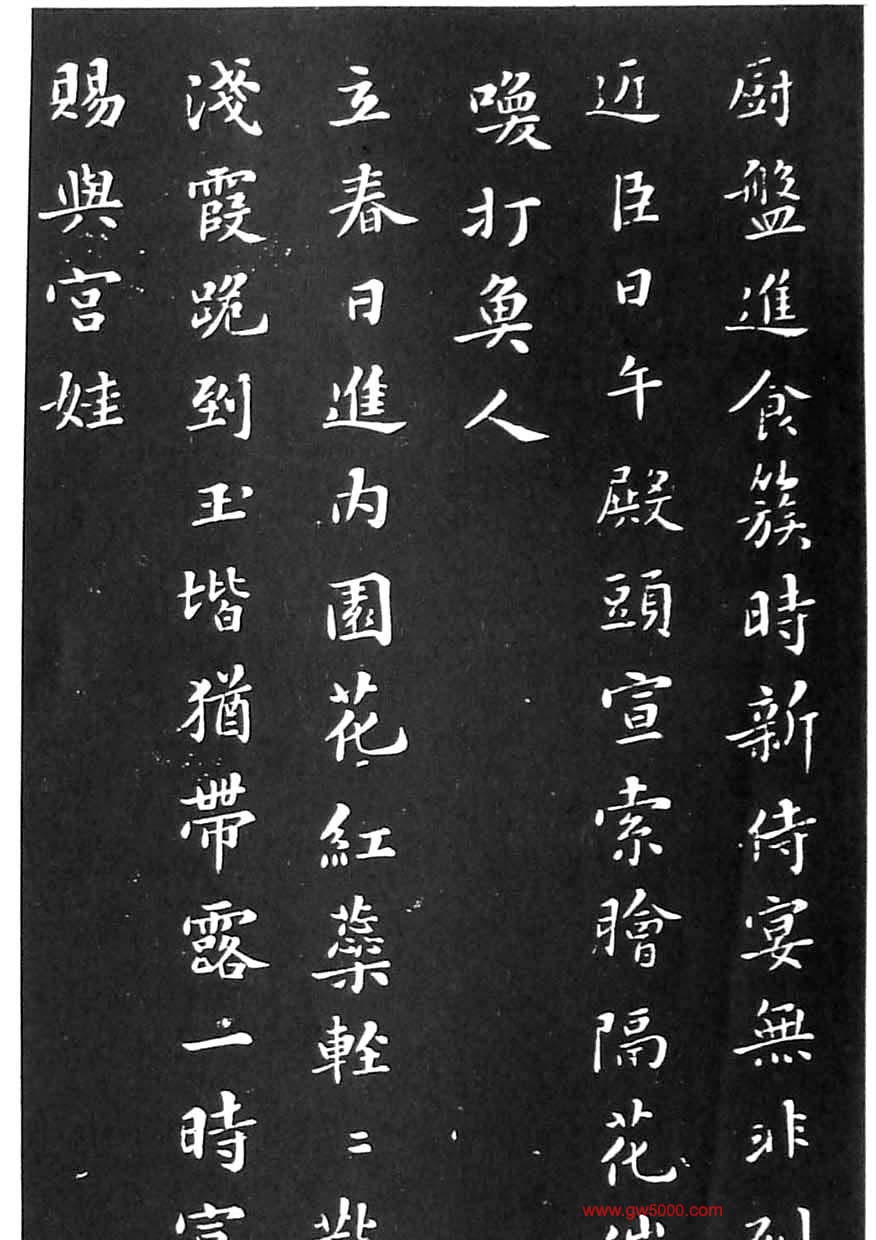 厨盤進食簇時新侍宴無非列
近臣日午殿頭宣索膾隔花催
喚打魚人
立春日進內園花紅蕊輕〻嫩
淺霞跪到玉堦猶帶露一時宣
賜與宮娃
www.gw5000.com